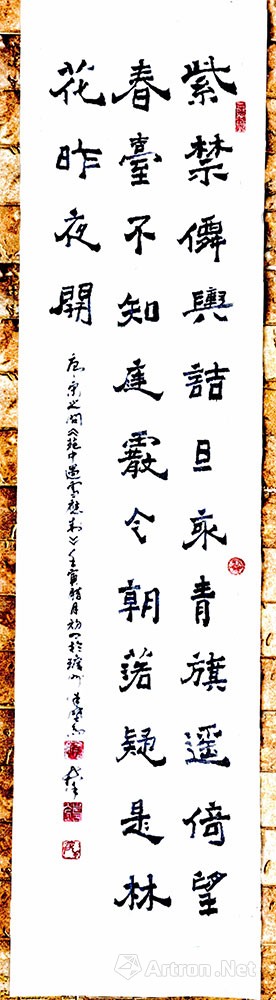 紫禁僊輿詰旦來青旗遥倚望
春臺不知庭霰今朝落疑是林
花昨夜開
唐·宋之问《苑中遇雪應制》壬寅腊月初
Artron.Net